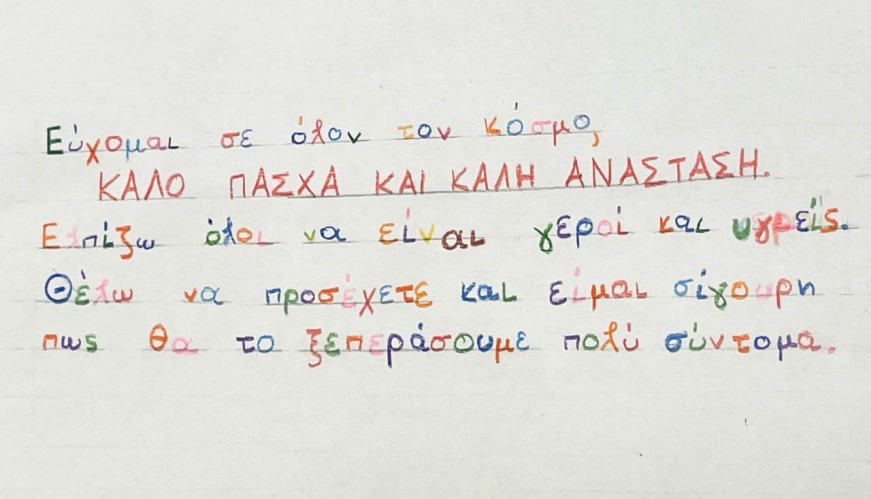 Εύχομαι σε όλον τον κόσμο,
ΚΑΛΟ ΠΑΣΧΑ ΚΑΙ ΚΑΛΗ ΑΝΑΣΤΑΣΗ.
Ελπίζω όλοι να είναι γεροί και υγρείς.
Θέλω να προσέχετε και είμαι σίγουρη
πως θα το ξεπεράσουμε πολύ σύντομα.